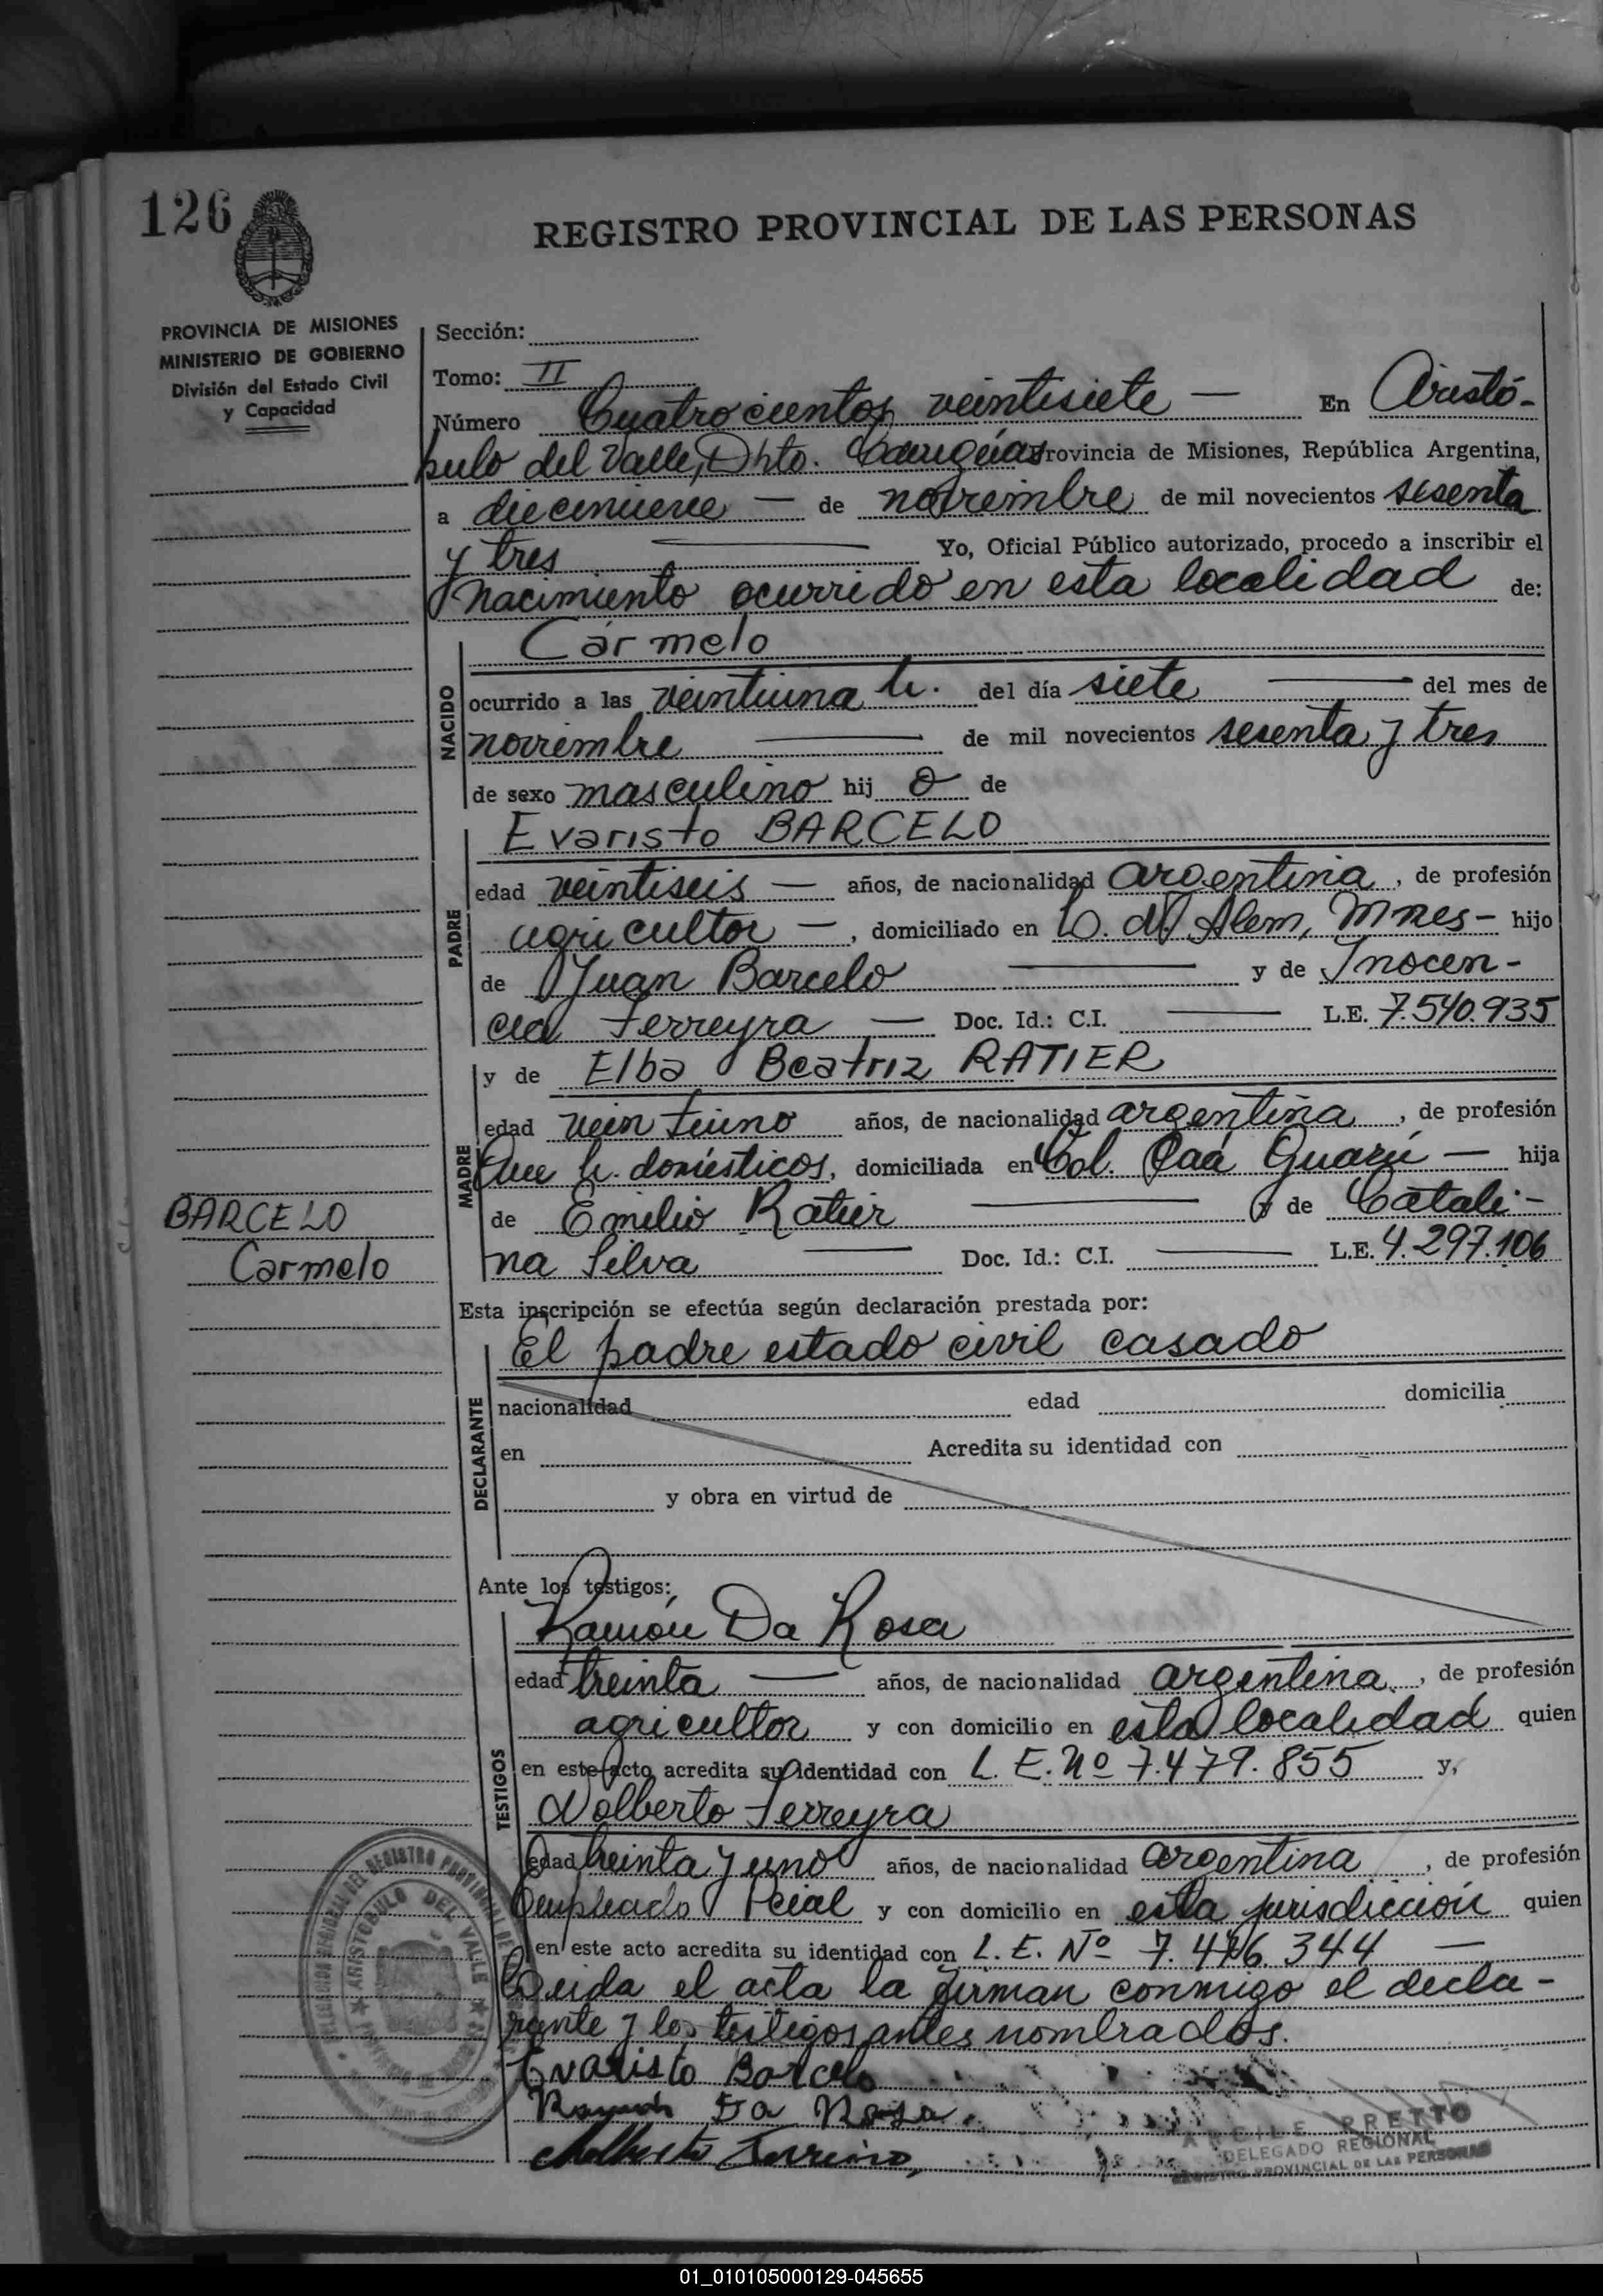 126
REGISTRO PROVINCIAL DE LAS PERSONAS
PROVINCIA DE MISIONES
MINISTERIO DE GOBIERNO
División del Estado Civil
y Capacidad
Sección:
Tomo: II
Número Cuatrocientos veintisiete — En Aristó-
bulo del Valle, Dpto. Cainguás Provincia de Misiones, República Argentina,
a diecinueve — de noviembre de mil novecientos sesenta
y tres — Yo, Oficial Público autorizado, procedo a inscribir el
Nacimiento ocurrido en esta localidad de:
NACIDO
Carmelo
ocurrido a las veintiuna h. del día siete — del mes de
noviembre — de mil novecientos sesenta y tres
de sexo masculino hij o de
PADRE
Evaristo BARCELO
edad veintiseis — años, de nacionalidad argentina, de profesión
agricultor —, domiciliado en L. N. Alem, Mnes — hijo
de Juan Barcelo — y de Inocen-
cia Ferreyra — Doc. Id.: C.I. — L.E. 7.540.935
MADRE
y de Elba Beatriz RATIER
edad veintiuno años, de nacionalidad argentina, de profesión
Que h. domésticos, domiciliada en Col. Caá Guazú — hija
de Emilio Ratier — y de Catali-
na Silva — Doc. Id.: C.I. — L.E. 4.297.106
BARCELO
Carmelo
Esta inscripción se efectúa según declaración prestada por:
DECLARANTE
El padre estado civil casado
nacionalidad edad domicilia
en Acredita su identidad con
y obra en virtud de
Ante los testigos:
TESTIGOS
Ramón Da Rosa
edad treinta — años, de nacionalidad argentina, de profesión
agricultor y con domicilio en esta localidad quien
en este acto acredita su identidad con L. E. Nº 7.479.855 y,
Adolberto Ferreyra
edad treinta y uno años, de nacionalidad argentina, de profesión
Empleado Pcial y con domicilio en esta jurisdicción quien
en este acto acredita su identidad con L. E. Nº 7.476.344 —
Leida el acta la firman conmigo el decla-
rante y los testigos antes nombrados.
Evaristo Barcelo
Ramón Da Rosa.
ARISTOBULO DEL VALLE
PRETTO
DELEGADO REGIONAL
REGISTRO PROVINCIAL DE LAS PERSONAS
01_010105000129-045655